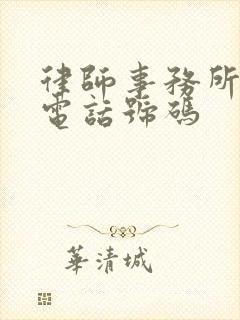 律師事務所
電話號碼
華清城